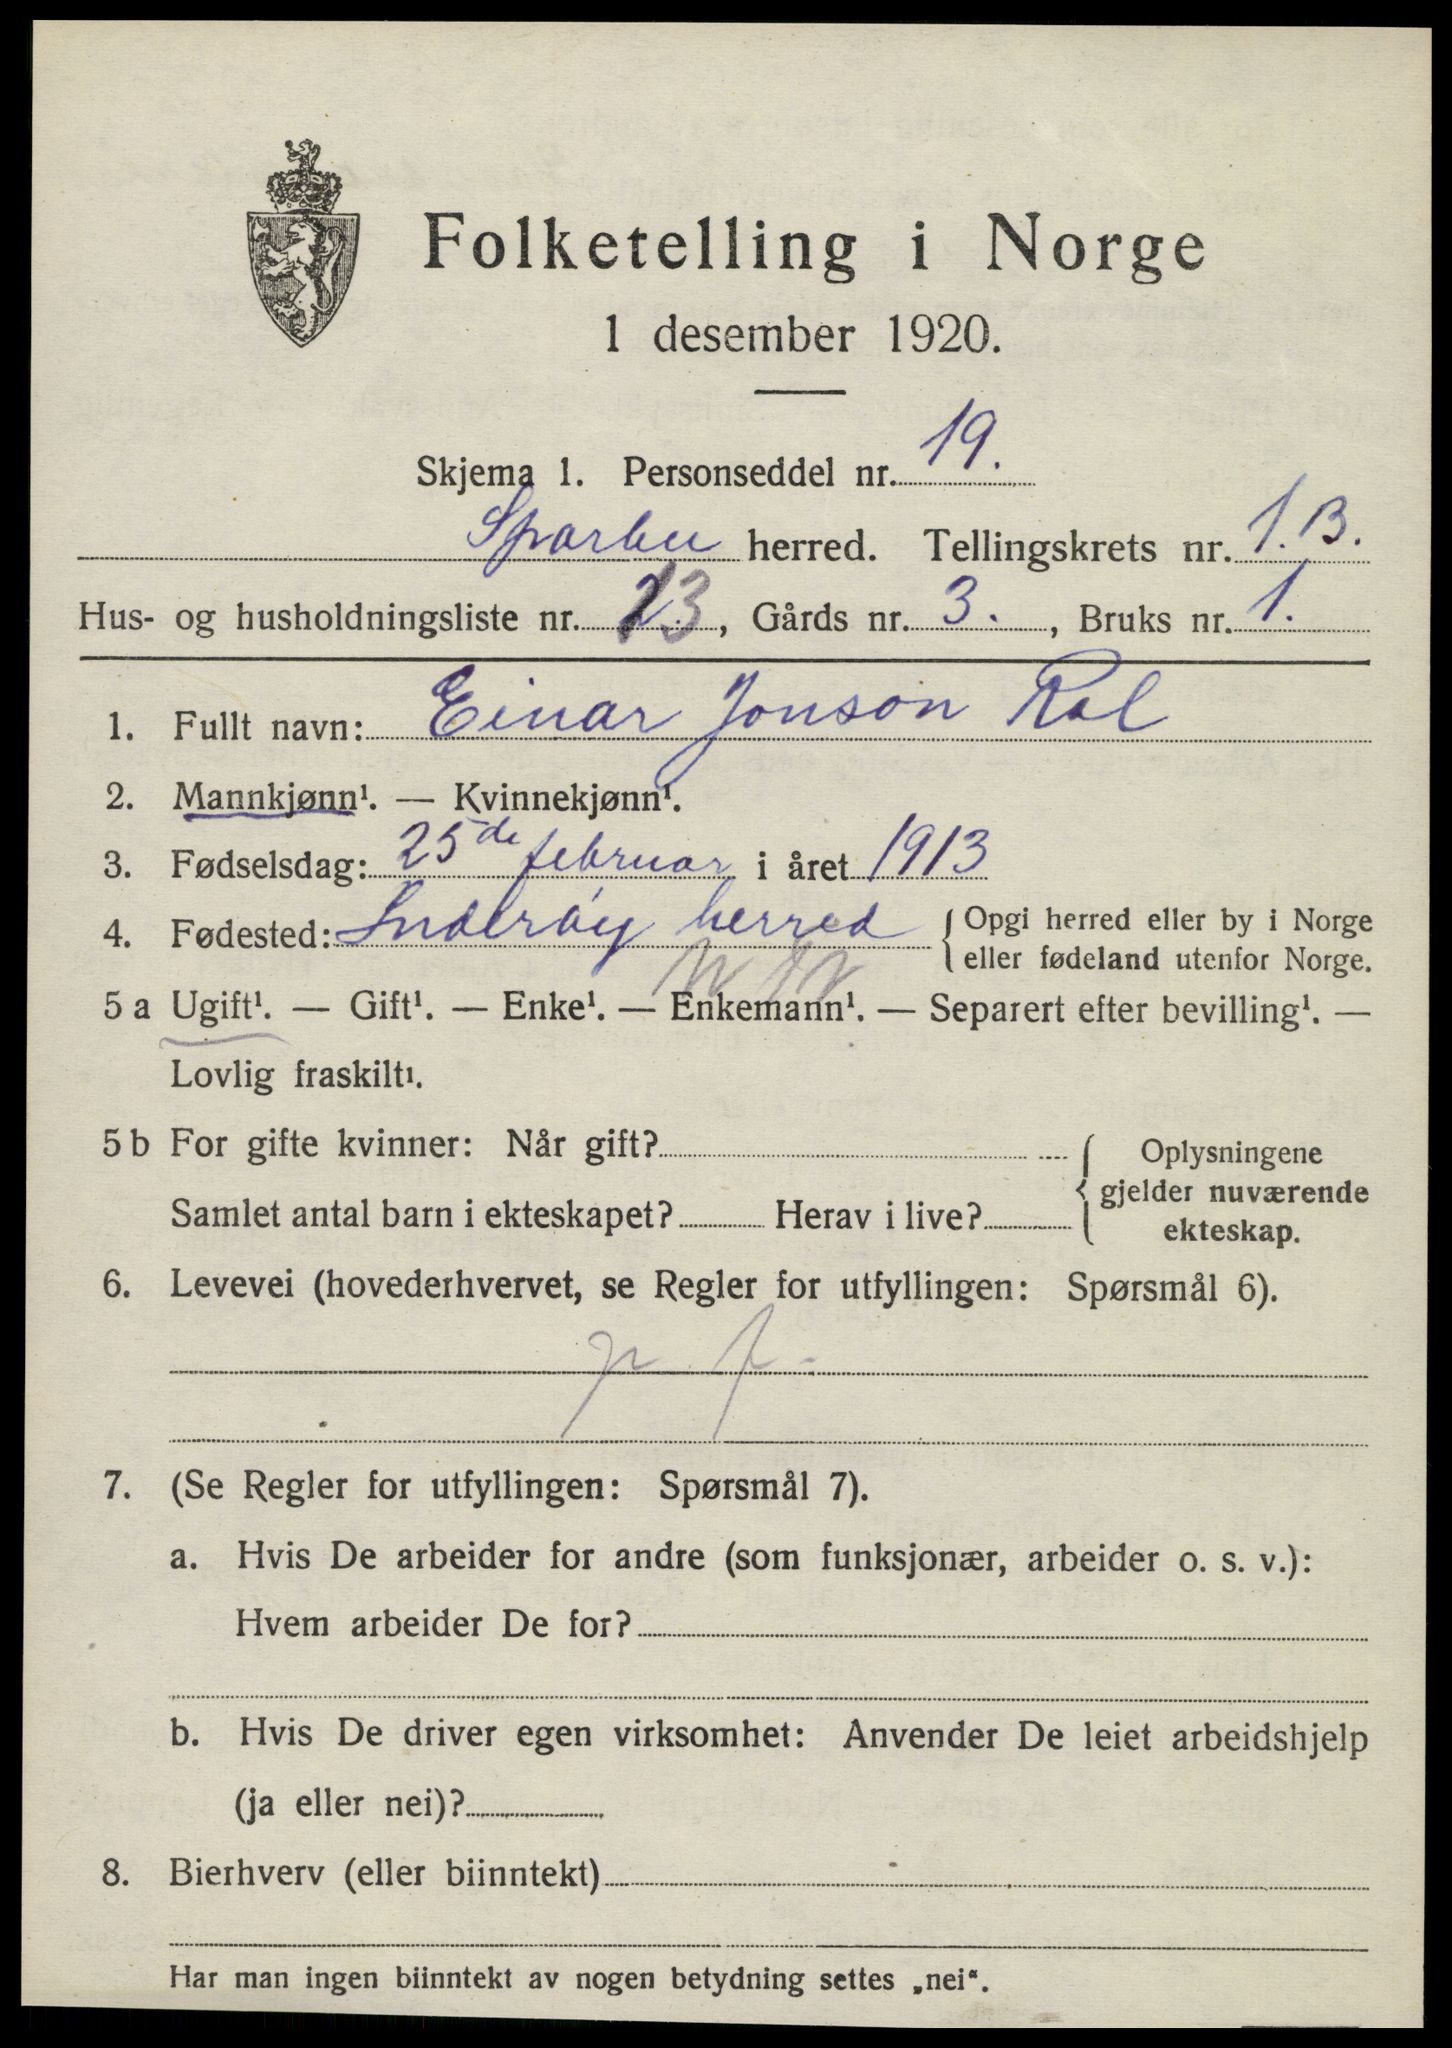 Folketelling i Norge
1 desember 1920.
Skjema 1. Personseddel nr. 19.
Sparbu herred. Tellingskrets nr. 1.B.
Hus- og husholdningsliste nr. 13, Gårds nr. 3., Bruks nr. 1.
1. Fullt navn: Einar Jonson Rol
2. Mannkjønn¹. — Kvinnekjønn¹.
3. Fødselsdag: 25de februar i året 1913
4. Fødested: Inderøy herred {Opgi herred eller by i Norge
eller fødeland utenfor Norge.
5 a Ugift¹. — Gift¹. — Enke¹. — Enkemann¹. — Separert efter bevilling¹. —
Lovlig fraskilt¹.
5 b For gifte kvinner: Når gift?
Samlet antal barn i ekteskapet? Herav i live?
{Oplysningene
gjelder nuværende
ekteskap.
6. Levevei (hovederhvervet, se Regler for utfyllingen: Spørsmål 6).
7. (Se Regler for utfyllingen: Spørsmål 7).
a. Hvis De arbeider for andre (som funksjonær, arbeider o. s. v.):
Hvem arbeider De for?
b. Hvis De driver egen virksomhet: Anvender De leiet arbeidshjelp
(ja eller nei)?
8. Bierhverv (eller biinntekt)
Har man ingen biinntekt av nogen betydning settes „nei“.